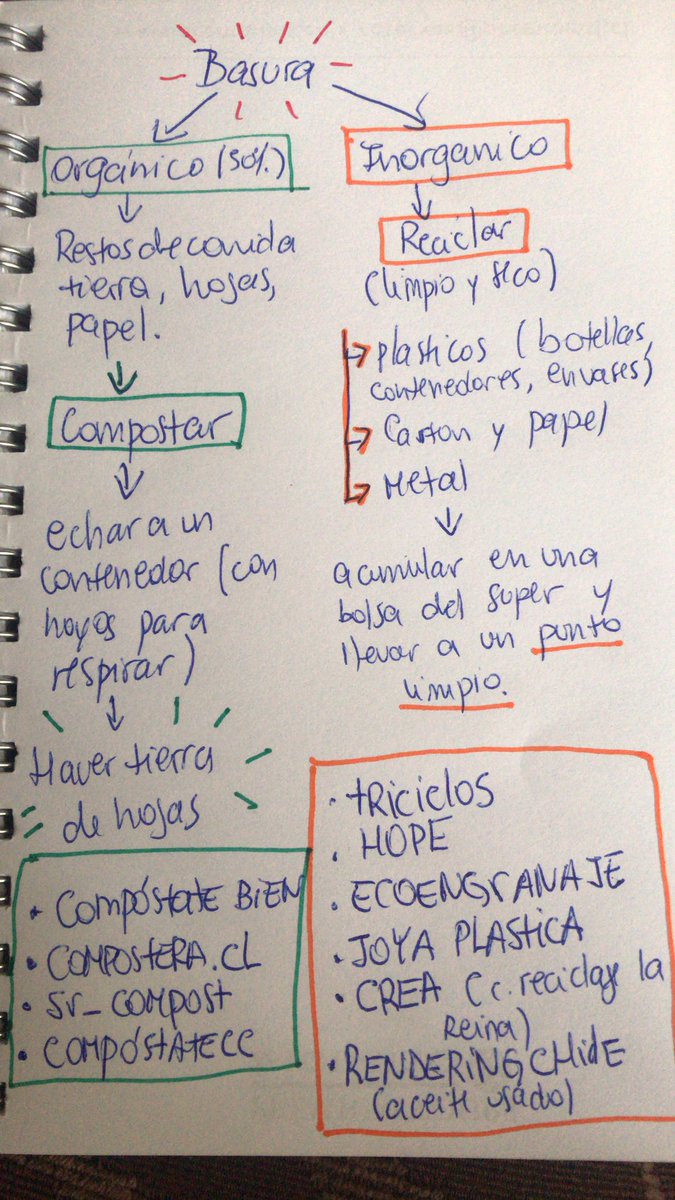 Basura
Orgánico (50%)
Restos de comida
tierra, hojas,
papel.
Compostar
echar a un
contenedor (con
hoyos para
respirar)
Hacer tierra
de hojas
• COMPÓStatE BiEN
• COMPOSTERA.CL
• SR_COMPOST
• COMPÓStATECC
Inorganico
Reciclar
(limpio y seco)
plasticos (botellas,
contenedores, envases)
Carton y papel
Metal
acumular en una
bolsa del super y
llevar a un punto
limpio.
• tRiciclos
• HOPE
• ECOENGRANAJE
• JOYA PLASTICA
• CREA (c. reciclaje la
Reina)
• RENDERING CHilE
(aceite usado)